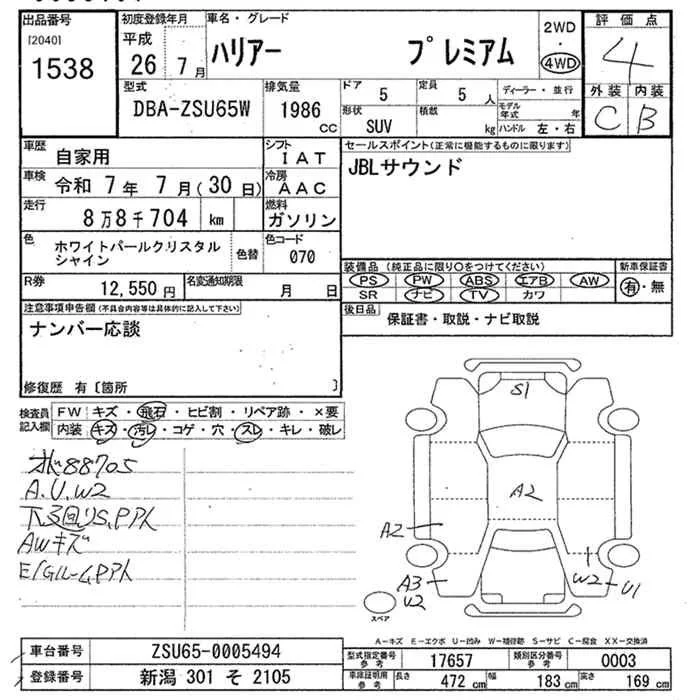 出品番号
[2040]
1538
初度登録年月
平成
26年 7月
車名・グレード
ハリアー プレミアム
2WD
・
4WD
評価点
4
外装 内装
C B
型式
DBA-ZSU65W
排気量
1986 CC
ドア
5
定員
5人
形状
SUV
積載
kg
ディーラー・並行
モデル年式 年
ハンドル 左・右
車歴
自家用
シフト
IAT
車検
令和 7年 7月(30日)
冷房
AAC
走行
8万8千704 km
燃料
ガソリン
色
ホワイトパールクリスタル
シャイン
色替
色コード
070
R券
12,550円
名変通知期限
月 日
セールスポイント(正常に機能するものに限ります)
JBLサウンド
装備品 (純正品に限り○をつけてください)
PS PW ABS エアB AW
SR ナビ TV カワ
新車保証書
有・無
後日品
保証書・取説・ナビ取説
注意事項申告欄(不具合内容等は具体的に記入して下さい)
ナンバー応談
修復歴 有〔箇所 〕
検査員
記入欄
FW キズ・飛石・ヒビ割・リペア跡・×要
内装 キズ・汚レ・コゲ・穴・スレ・キレ・破レ
88705
A.U.W2
下廻りS,Pアト
AWキズ
E/Gルーム,Pアト
S1
A2
A2
A3
U2
W2
U1
スペア
A-キズ E-エクボ U-凹み W-補修跡 S-サビ C-腐食 XX-交換済
車台番号
ZSU65-0005494
登録番号
新潟 301 そ 2105
型式指定番号
参考
17657
類別区分番号
参考
0003
車庫証明用
参考
長さ 472 cm
幅 183 cm
高さ 169 cm